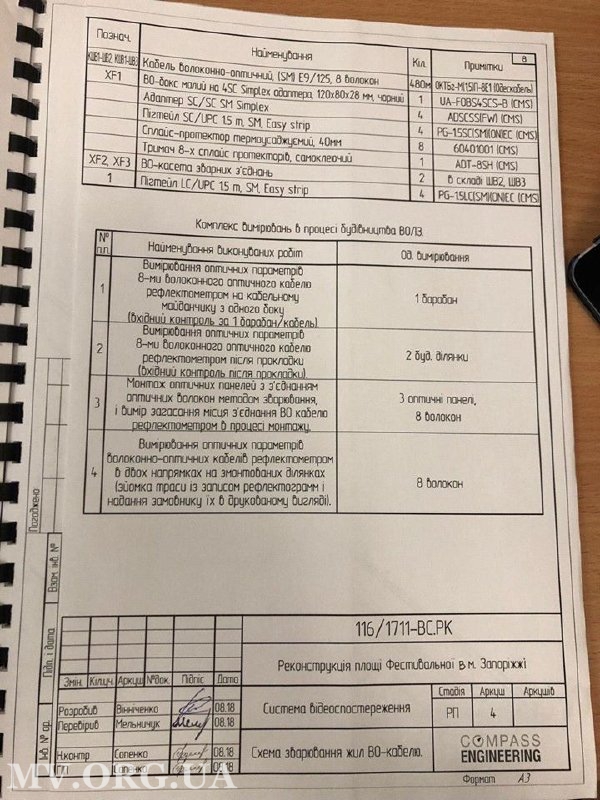 8
Познач.
Найменування
Кіл.
Примітки
КШВ1-ШВ2, КШВ1-ШВ3
Кабель волоконно-оптичний, (SM) E9/125, 8 волокон
480м
XF1
ВО-бокс малий на 4SC Simplex адаптера, 120х80х28 мм, чорний
1
UA-FOBS4SCS-B (CMS)
Адаптер SC/SC SM Simplex
4
ADSCSS(FW) (CMS)
Пігтейл SC/UPC 1.5 m, SM, Easy strip
4
PG-1.5SC(SM)(ON)EC (CMS)
Сплайс-протектор термоусаджуємий, 40мм
8
60401001 (CMS)
Тримач 8-х сплайс протекторів, самоклеючий
1
AOT-8SH (CMS)
XF2, XF3
ВО-касета зварних з'єднань
2
в складі ШВ2, ШВ3
1
Пігтейл LC/UPC 1.5 m, SM, Easy strip
4
PG-1.5LC(SM)(ON)EC (CMS)
Комплекс вимірювань в процесі будівництва ВОЛЗ.
№ п.п.
Найменування виконуваних робіт
Од. вимірювання
1
Вимірювання оптичних параметрів
8-ми волоконного оптичного кабелю
рефлектометром на кабельному
майданчику з одного боку
(вхідний контроль за 1 барабан/кабель).
1 барабан
2
Вимірювання оптичних параметрів
8-ми волоконного оптичного кабелю
рефлектометром після прокладки
(вхідний контроль після прокладки).
2 буд. ділянки
3
Монтаж оптичних панелей з з'єднанням
оптичних волокон методом зварювання,
і вимір загасання місця з'єднання ВО кабелю
рефлектометром в процесі монтажу.
3 оптичні панелі,
8 волокон
4
Вимірювання оптичних параметрів
волоконно-оптичних кабелів рефлектометром
в двох напрямках на змонтованих ділянках
(зйомка траси із записом рефлектограмм і
надання замовнику їх в друкованому вигляді).
8 волокон
Погоджено
Взам. інв. №
Підп. і дата
Інв. № ор.
116/1711-ВС.РК
Реконструкція площі Фестивальної в м. Запоріжжі
Змін. Кіл.уч. Аркуш №док. Підпіс Дата
Розробив Вінніченко 08.18
Перевірив Мельничук 08.18
Н.контр Сопенко 08.18
ГІП Сопенко 08.18
Система відеоспостереження
Стадія Аркуш Аркушів
РП 4
Схема зварювання жил ВО-кабелю.
COMPASS
ENGINEERING
Формат А3
MV.ORG.UA